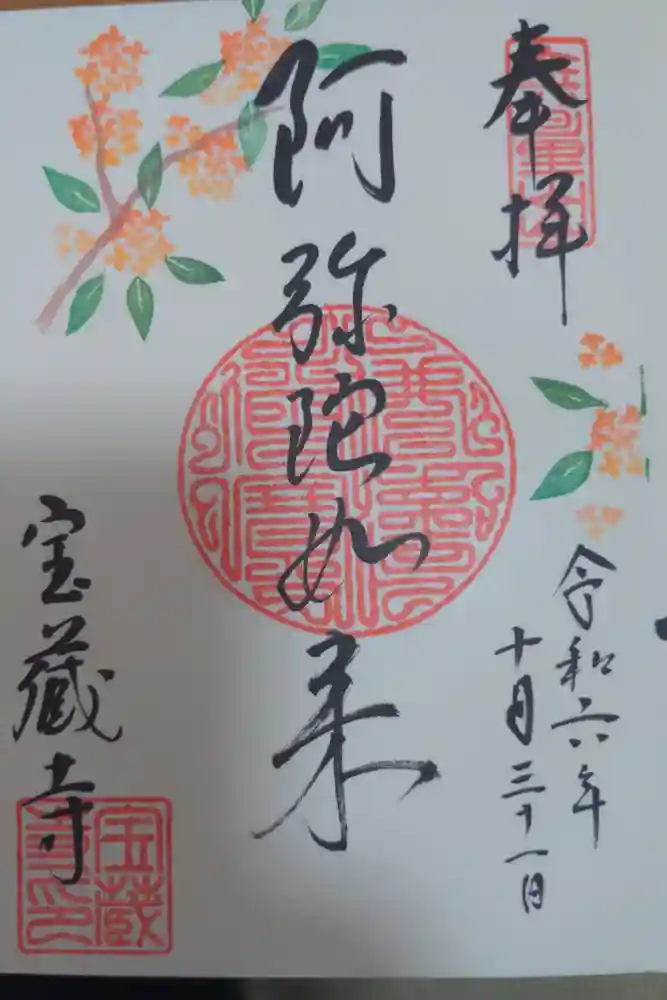 奉拝
令和六年
十月三十一日
阿弥陀如来
宝蔵寺
宝蔵
寺印